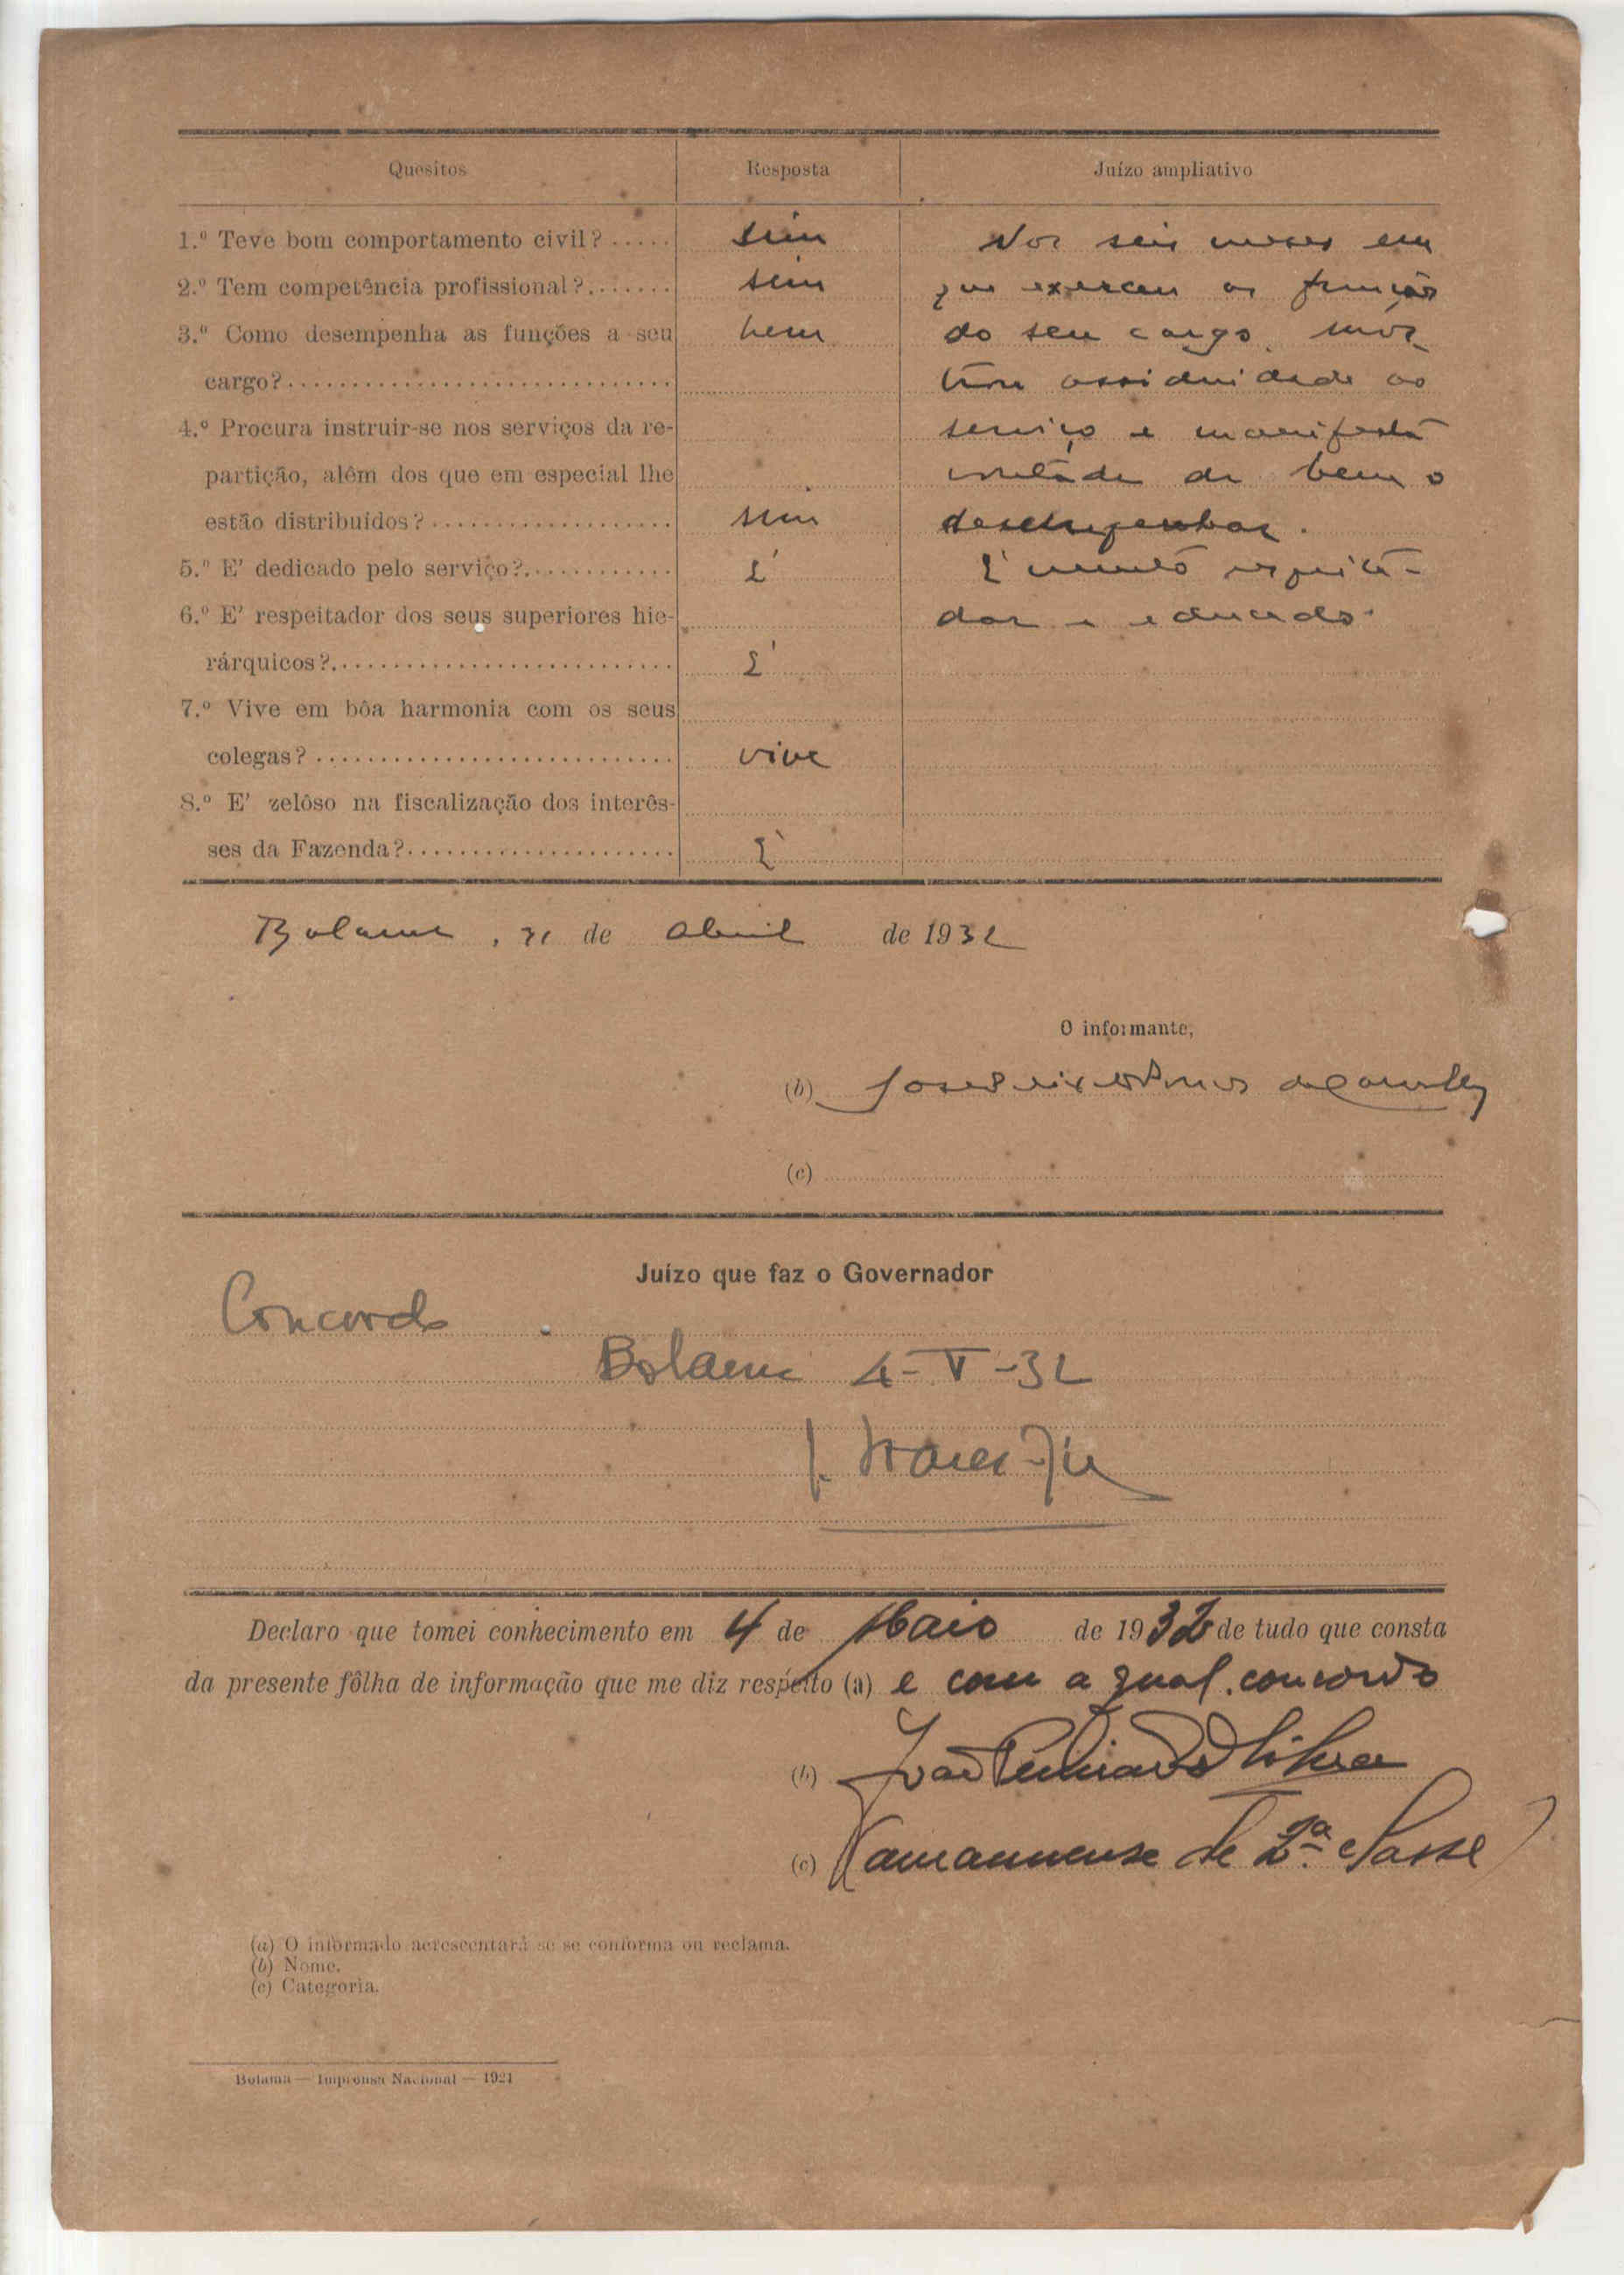 Quesitos Resposta Juízo ampliativo
1.º Teve bom comportamento civil?..... sim Nos seis meses em
2.º Tem competência profissional?....... sim que exerceu as funções
3.º Como desempenha as funções a seu bem do seu cargo, mos
cargo?............................ trou assiduidade ao
4.º Procura instruir-se nos serviços da re- serviço e manifesta
partição, alêm dos que em especial lhe vontade de bem o
estão distribuídos?.................. sim desempenhar.
5.º E' dedicado pelo serviço?............ É É muito respeita-
6.º E' respeitador dos seus superiores hie- dor e educado.
rárquicos?......................... É
7.º Vive em bôa harmonia com os seus
colegas?........................... vive
8.º E' zelôso na fiscalização dos interês-
ses da Fazenda?.................... É
Bolama, de Abril de 1932
O informante,
(b) José
(c)
Juízo que faz o Governador
Concordo
Bolama 4-V-32
Declaro que tomei conhecimento em 4 de Maio de 1932 de tudo que consta
da presente fôlha de informação que me diz respeito (a) e com a qual concordo
(b) João
(c) (amanuense de 2.ª classe)
(a) O informado acrescentará se se conforma ou reclama.
(b) Nome.
(c) Categoria.
Bolama — Imprensa Nacional — 1921